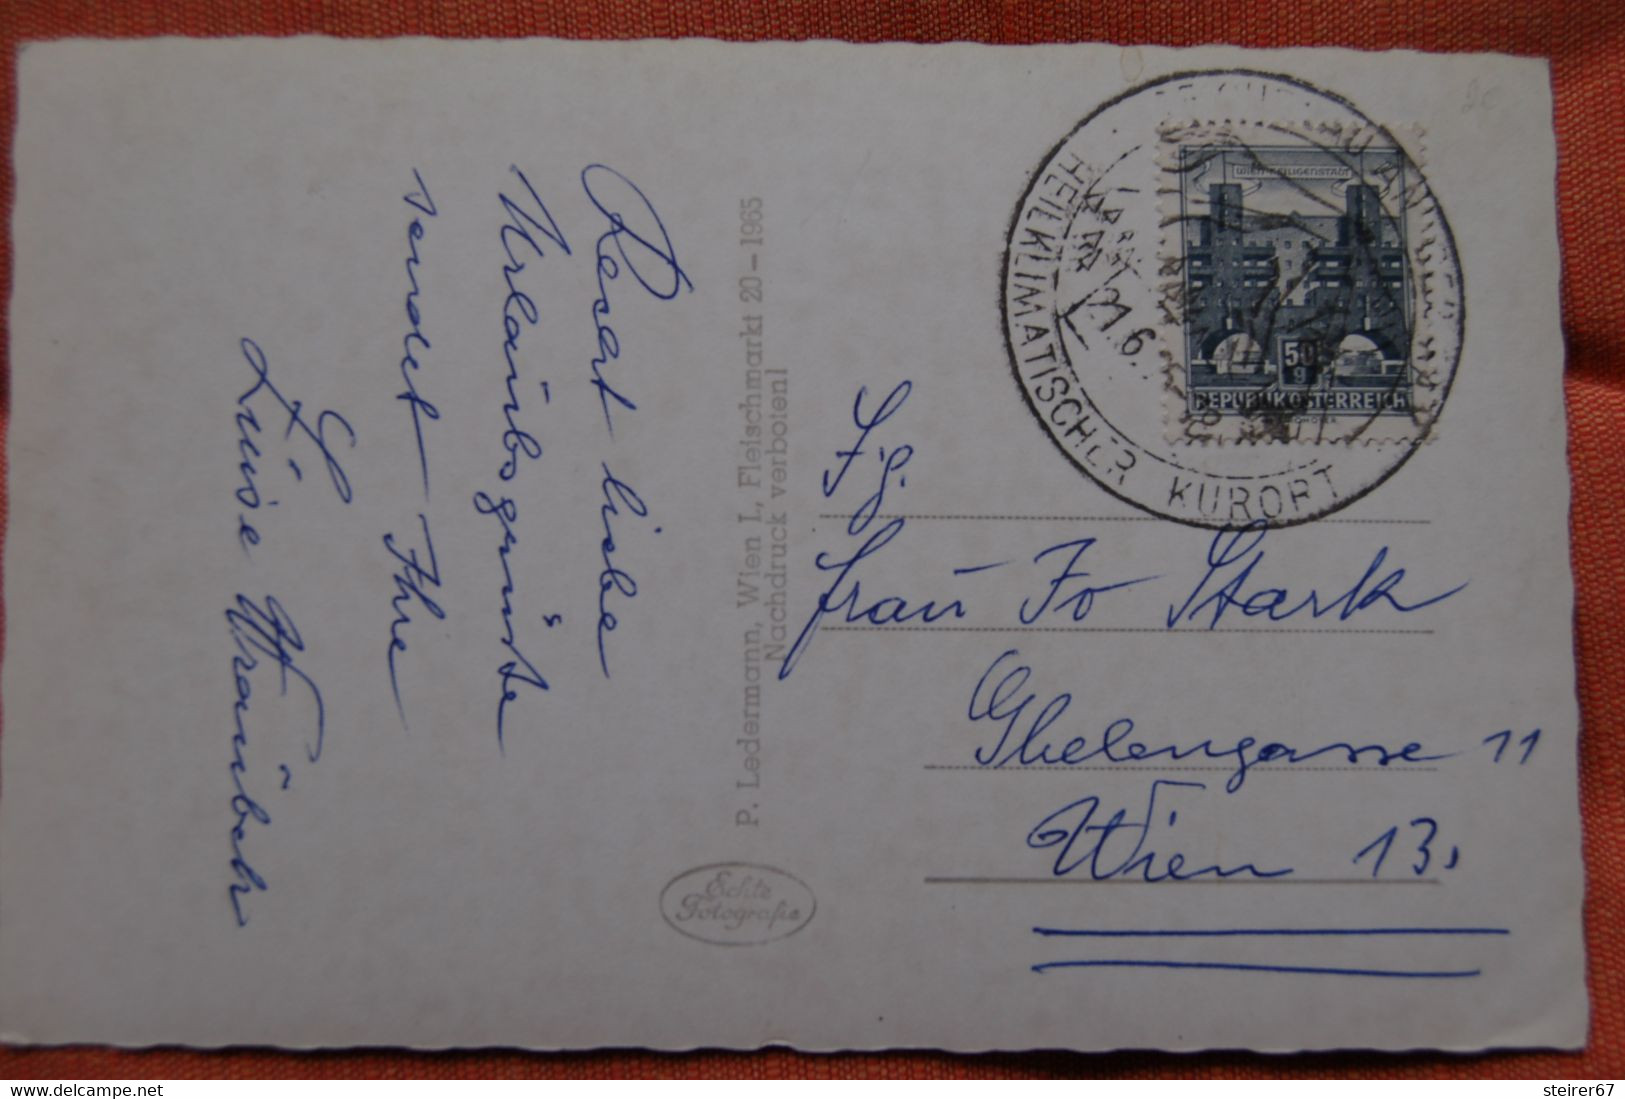 Recht liebe
Urlaubsgrüße
sendet Ihre
Luise
P. Ledermann, Wien I., Fleischmarkt 20-1965
Nachdruck verboten!
Echte
Fotografie
HEILKLIMATISCHER KURORT
21.6.
WIEN-HEILIGENSTADT
50
g
REPUBLIK ÖSTERREICH
Frau Stark
Ghelengasse 11
Wien 13.
www.delcampe.net
steirer67